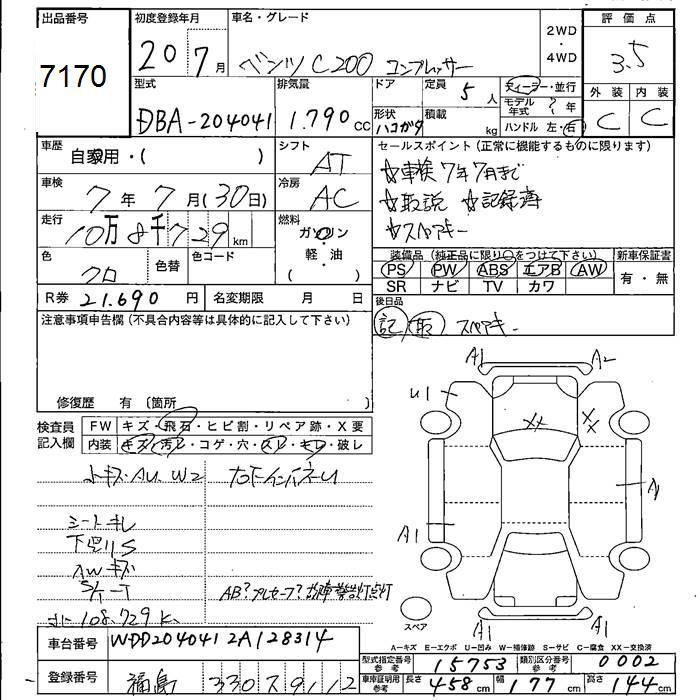 出品番号
7170
初度登録年月
20 7月
車名・グレード
ベンツ C200 コンプレッサー
2WD
・
4WD
評価点
3.5
外装 内装
C C
型式
DBA-204041
排気量
1.790 cc
ドア
定員
5 人
形状
ハコガタ
積載
kg
ディーラー・並行
モデル年式 ? 年
ハンドル 左・右
車歴
自家用・( )
シフト
AT
セールスポイント (正常に機能するものに限ります)
☆車検7年7月まで
☆取説 ☆記録簿
☆スペアキー
車検
7年7月(30日)
冷房
AC
走行
10万8千729km
燃料
ガソリン
・
軽・油
( )
色
クロ
色替
色コード
装備品 (純正品に限り○をつけて下さい)
新車保証書
PS PW ABS エアB AW
SR ナビ TV カワ
有・無
R券 21.690 円
名変期限 月 日
後日品
記 取 スペアキー
注意事項申告欄 (不具合内容等は具体的に記入して下さい)
修復歴 有 (箇所
検査員
記入欄
FW キズ・飛石・ヒビ割・リペア跡・X要
内装 キズ・汚レ・コゲ・穴・スレ・キレ・破レ
小キズ・AU、W2
シートキレ
下廻りS
AWキズ
108.729K
AB? 故障警告灯点灯
A1 A2
U1
XX
XX
A1
A1
A1 A1
スペア
車台番号 WDD2040412A128314
登録番号 福島 330 ソ 9112
A-キズ E-エクボ U-凹み W-補修跡 S-サビ C-腐食 XX-交換済
型式指定番号 参考 15753
類別区分番号 参考 0002
車庫証明用 参考 長さ 458cm 幅 177cm 高さ 144cm